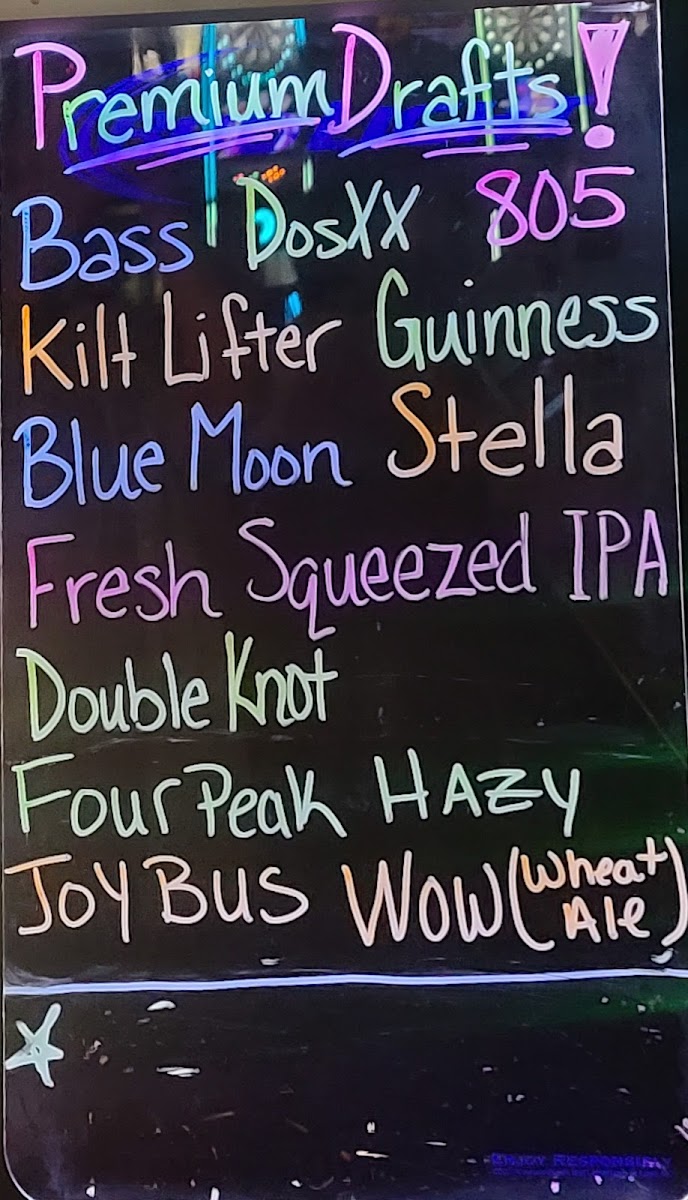 Premium Drafts!
Bass DosXX 805
Kilt Lifter Guinness
Blue Moon Stella
Fresh Squeezed IPA
Double Knot
Four Peak HAZY
JOY BUS WOW (Wheat Ale)
ENJOY RESPONSIBLY